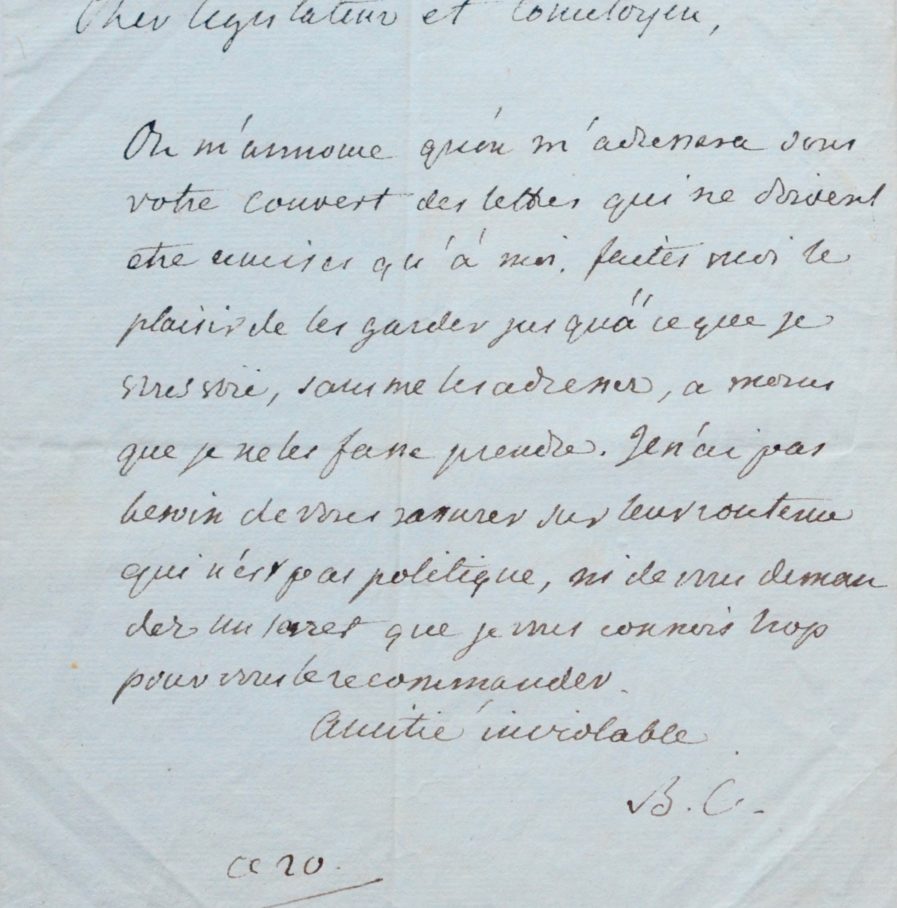 Cher législateur et Concitoyen,
On m'annonce qu'on m'adressera sous
votre couvert des lettres qui ne doivent
etre remises qu'à moi. faites moi le
plaisir de les garder jusqu'à ce que je
vous voie, sans me les adresser, a moins
que je ne les fasse prendre. Je n'ai pas
besoin de vous rassurer sur leur contenu
qui n'est pas politique, ni de vous deman
der un secret que je vous connois trop
pour vous le recommander.
Amitié inviolable
B. C.
ce 20.